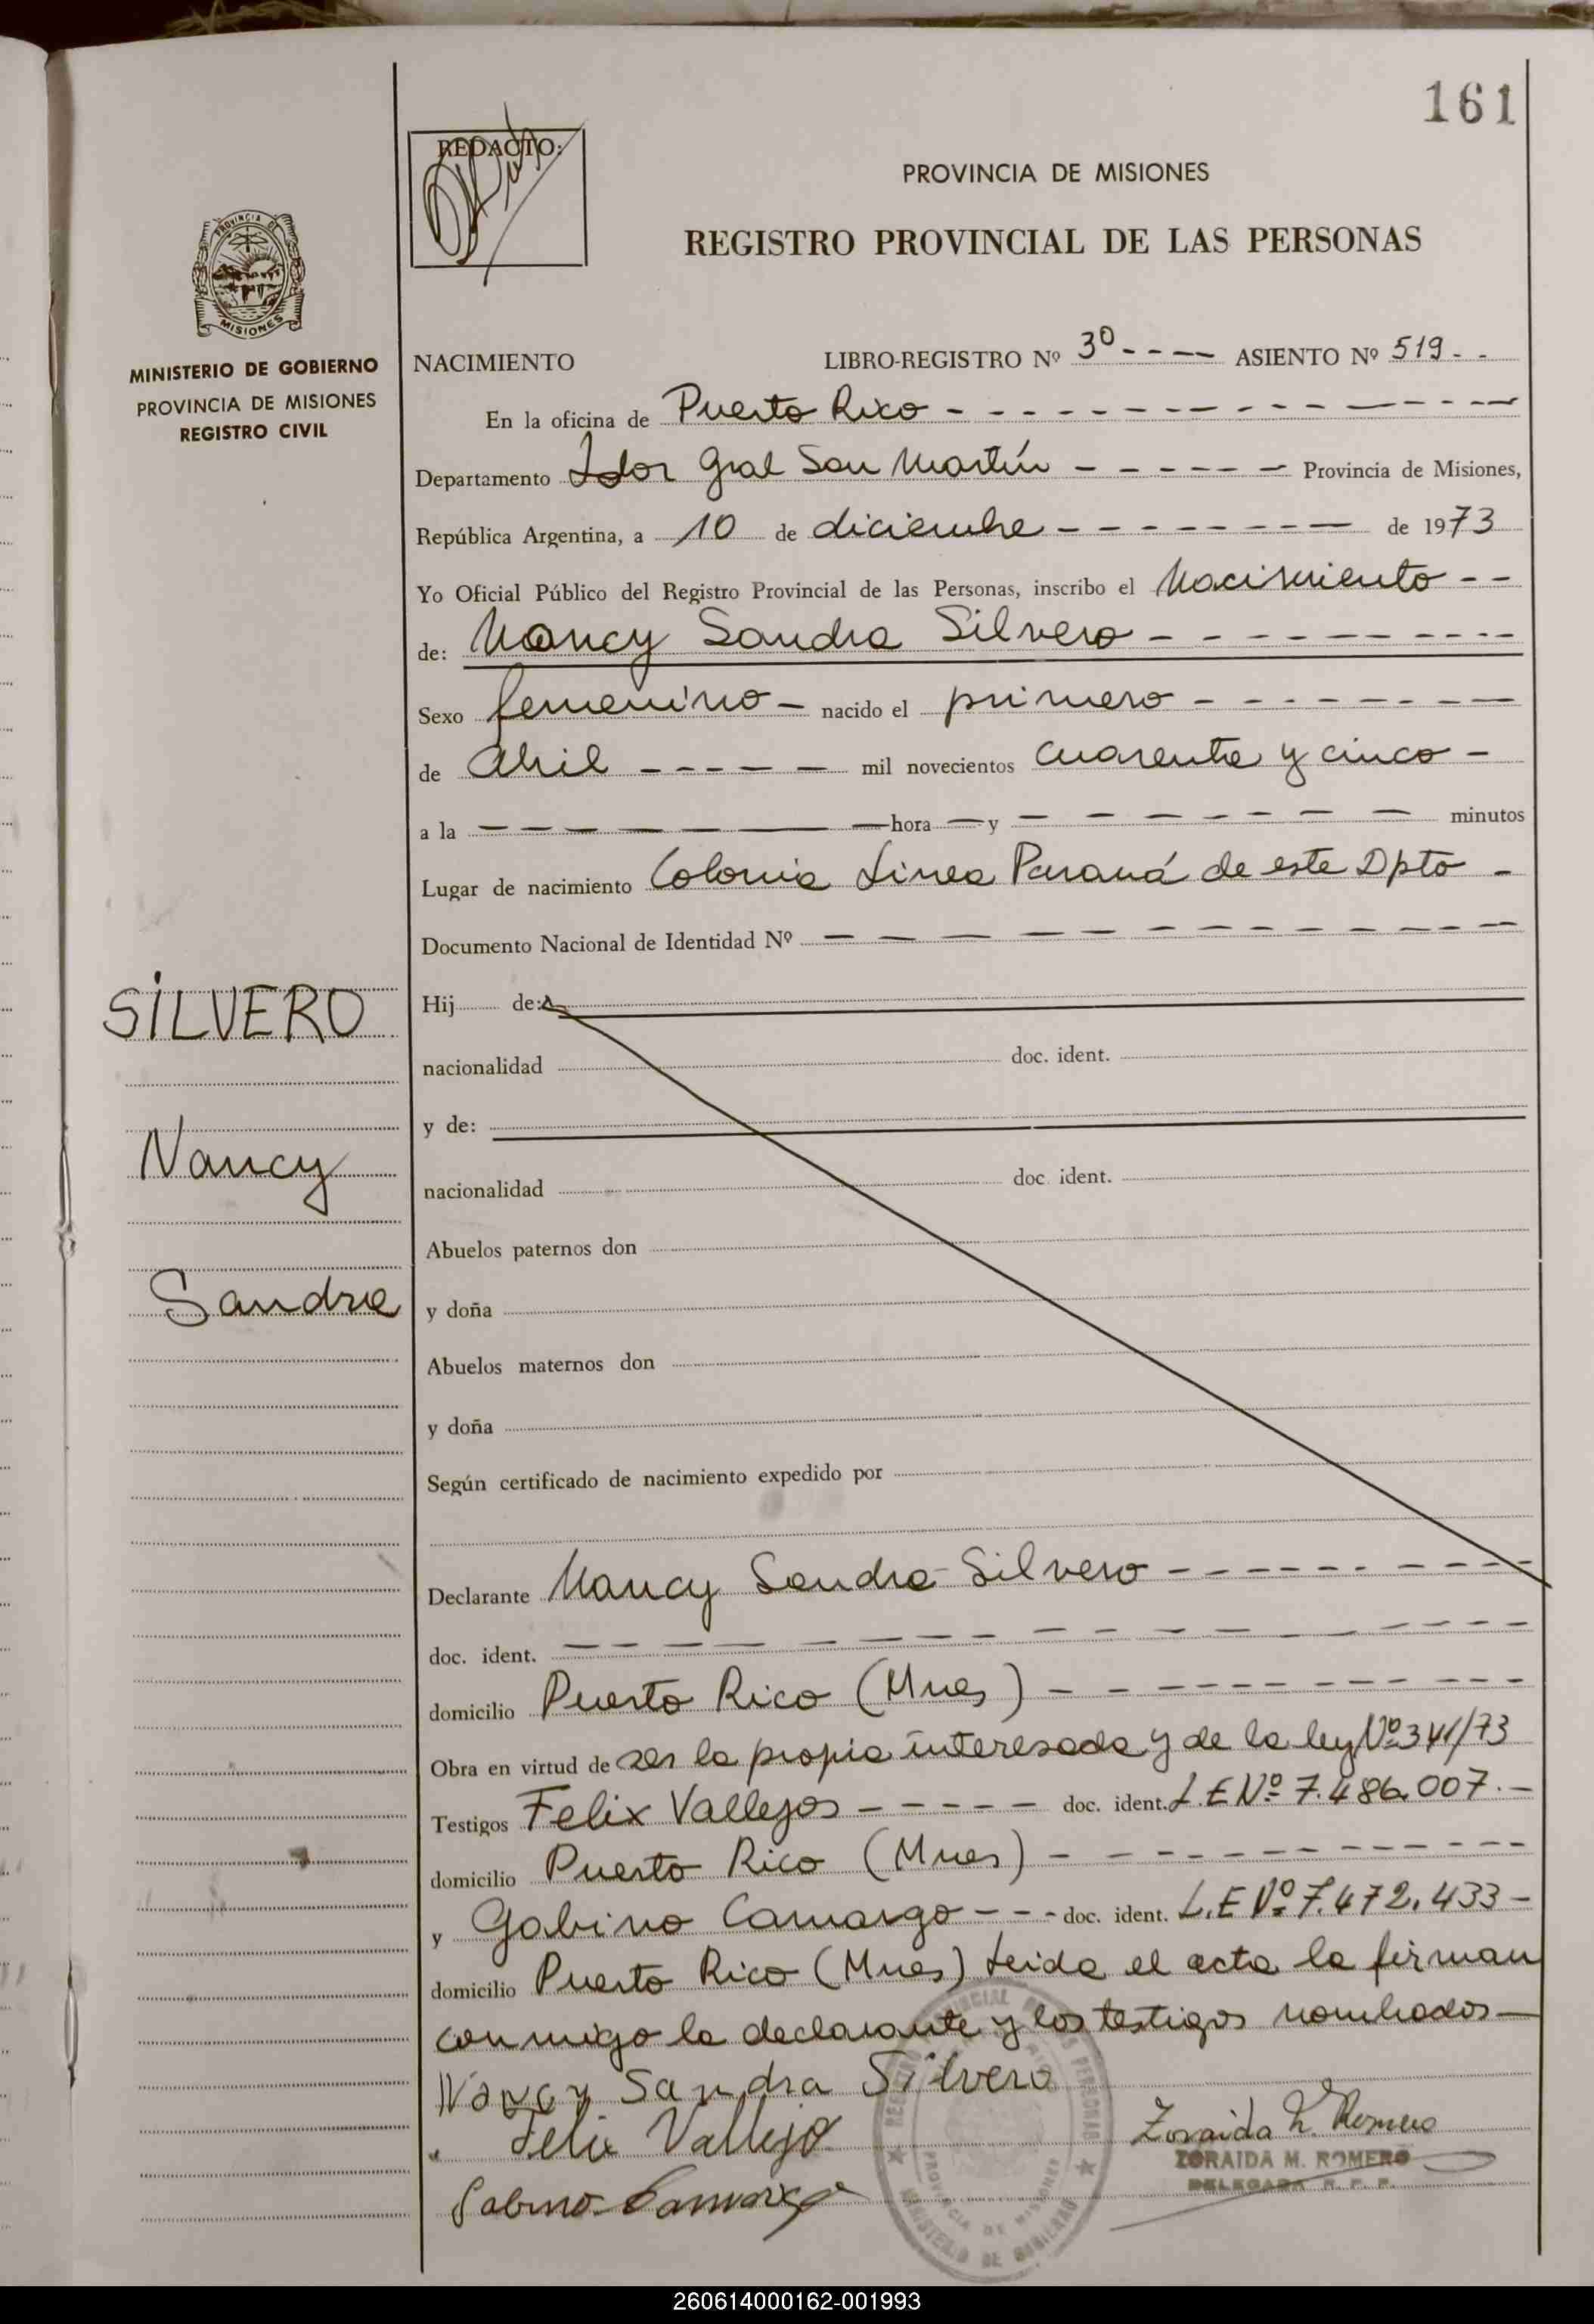 161
REDACTO:
PROVINCIA DE MISIONES
REGISTRO PROVINCIAL DE LAS PERSONAS
PROVINCIA DE
MISIONES
MINISTERIO DE GOBIERNO
PROVINCIA DE MISIONES
REGISTRO CIVIL
NACIMIENTO LIBRO-REGISTRO Nº 3º - - - - ASIENTO Nº 519 - -
En la oficina de Puerto Rico - - - - - - - - - - - - -
Departamento Ldor Gral San Martín - - - - - - Provincia de Misiones,
República Argentina, a 10 de diciembre - - - - - - - - - de 1973
Yo Oficial Público del Registro Provincial de las Personas, inscribo el Nacimiento - -
de: Nancy Sandra Silvero - - - - - - - - - -
Sexo femenino - nacido el primero - - - - - - - -
de Abril - - - - - - mil novecientos cuarenta y cinco -
a la - - - - - - - hora - y - - - - - - - minutos
Lugar de nacimiento Colonia Linea Paraná de este Dpto -
Documento Nacional de Identidad Nº - - - - - - - - - - - -
SILVERO
Hij de:
nacionalidad doc. ident.
y de:
Nancy
nacionalidad doc. ident.
Abuelos paternos don
Sandra
y doña
Abuelos maternos don
y doña
Según certificado de nacimiento expedido por
Declarante Nancy Sandra Silvero - - - - - - - - - -
doc. ident. - - - - - - - - - - - - - -
domicilio Puerto Rico (Mnes) - - - - - - - - - - -
Obra en virtud de ser la propia interesada y de la ley Nº 341/73
Testigos Felix Vallejos - - - - - - doc. ident. L.E Nº 7.486.007. -
domicilio Puerto Rico (Mnes) - - - - - - - - - - -
y Gabino Camargo - - - doc. ident. L.E Nº 7.472.433 -
domicilio Puerto Rico (Mnes) Leida el acta la firman
conmigo la declarante y los testigos nombrados -
Nancy Sandra Silvero
Felix Vallejo
Zoraida M. Romero
ZORAIDA M. ROMERO
DELEGADA R. P. P.
Gabino Camargo
REGISTRO PROVINCIAL DE LAS PERSONAS
PROVINCIA DE MISIONES
MINISTERIO DE GOBIERNO
260614000162-001993